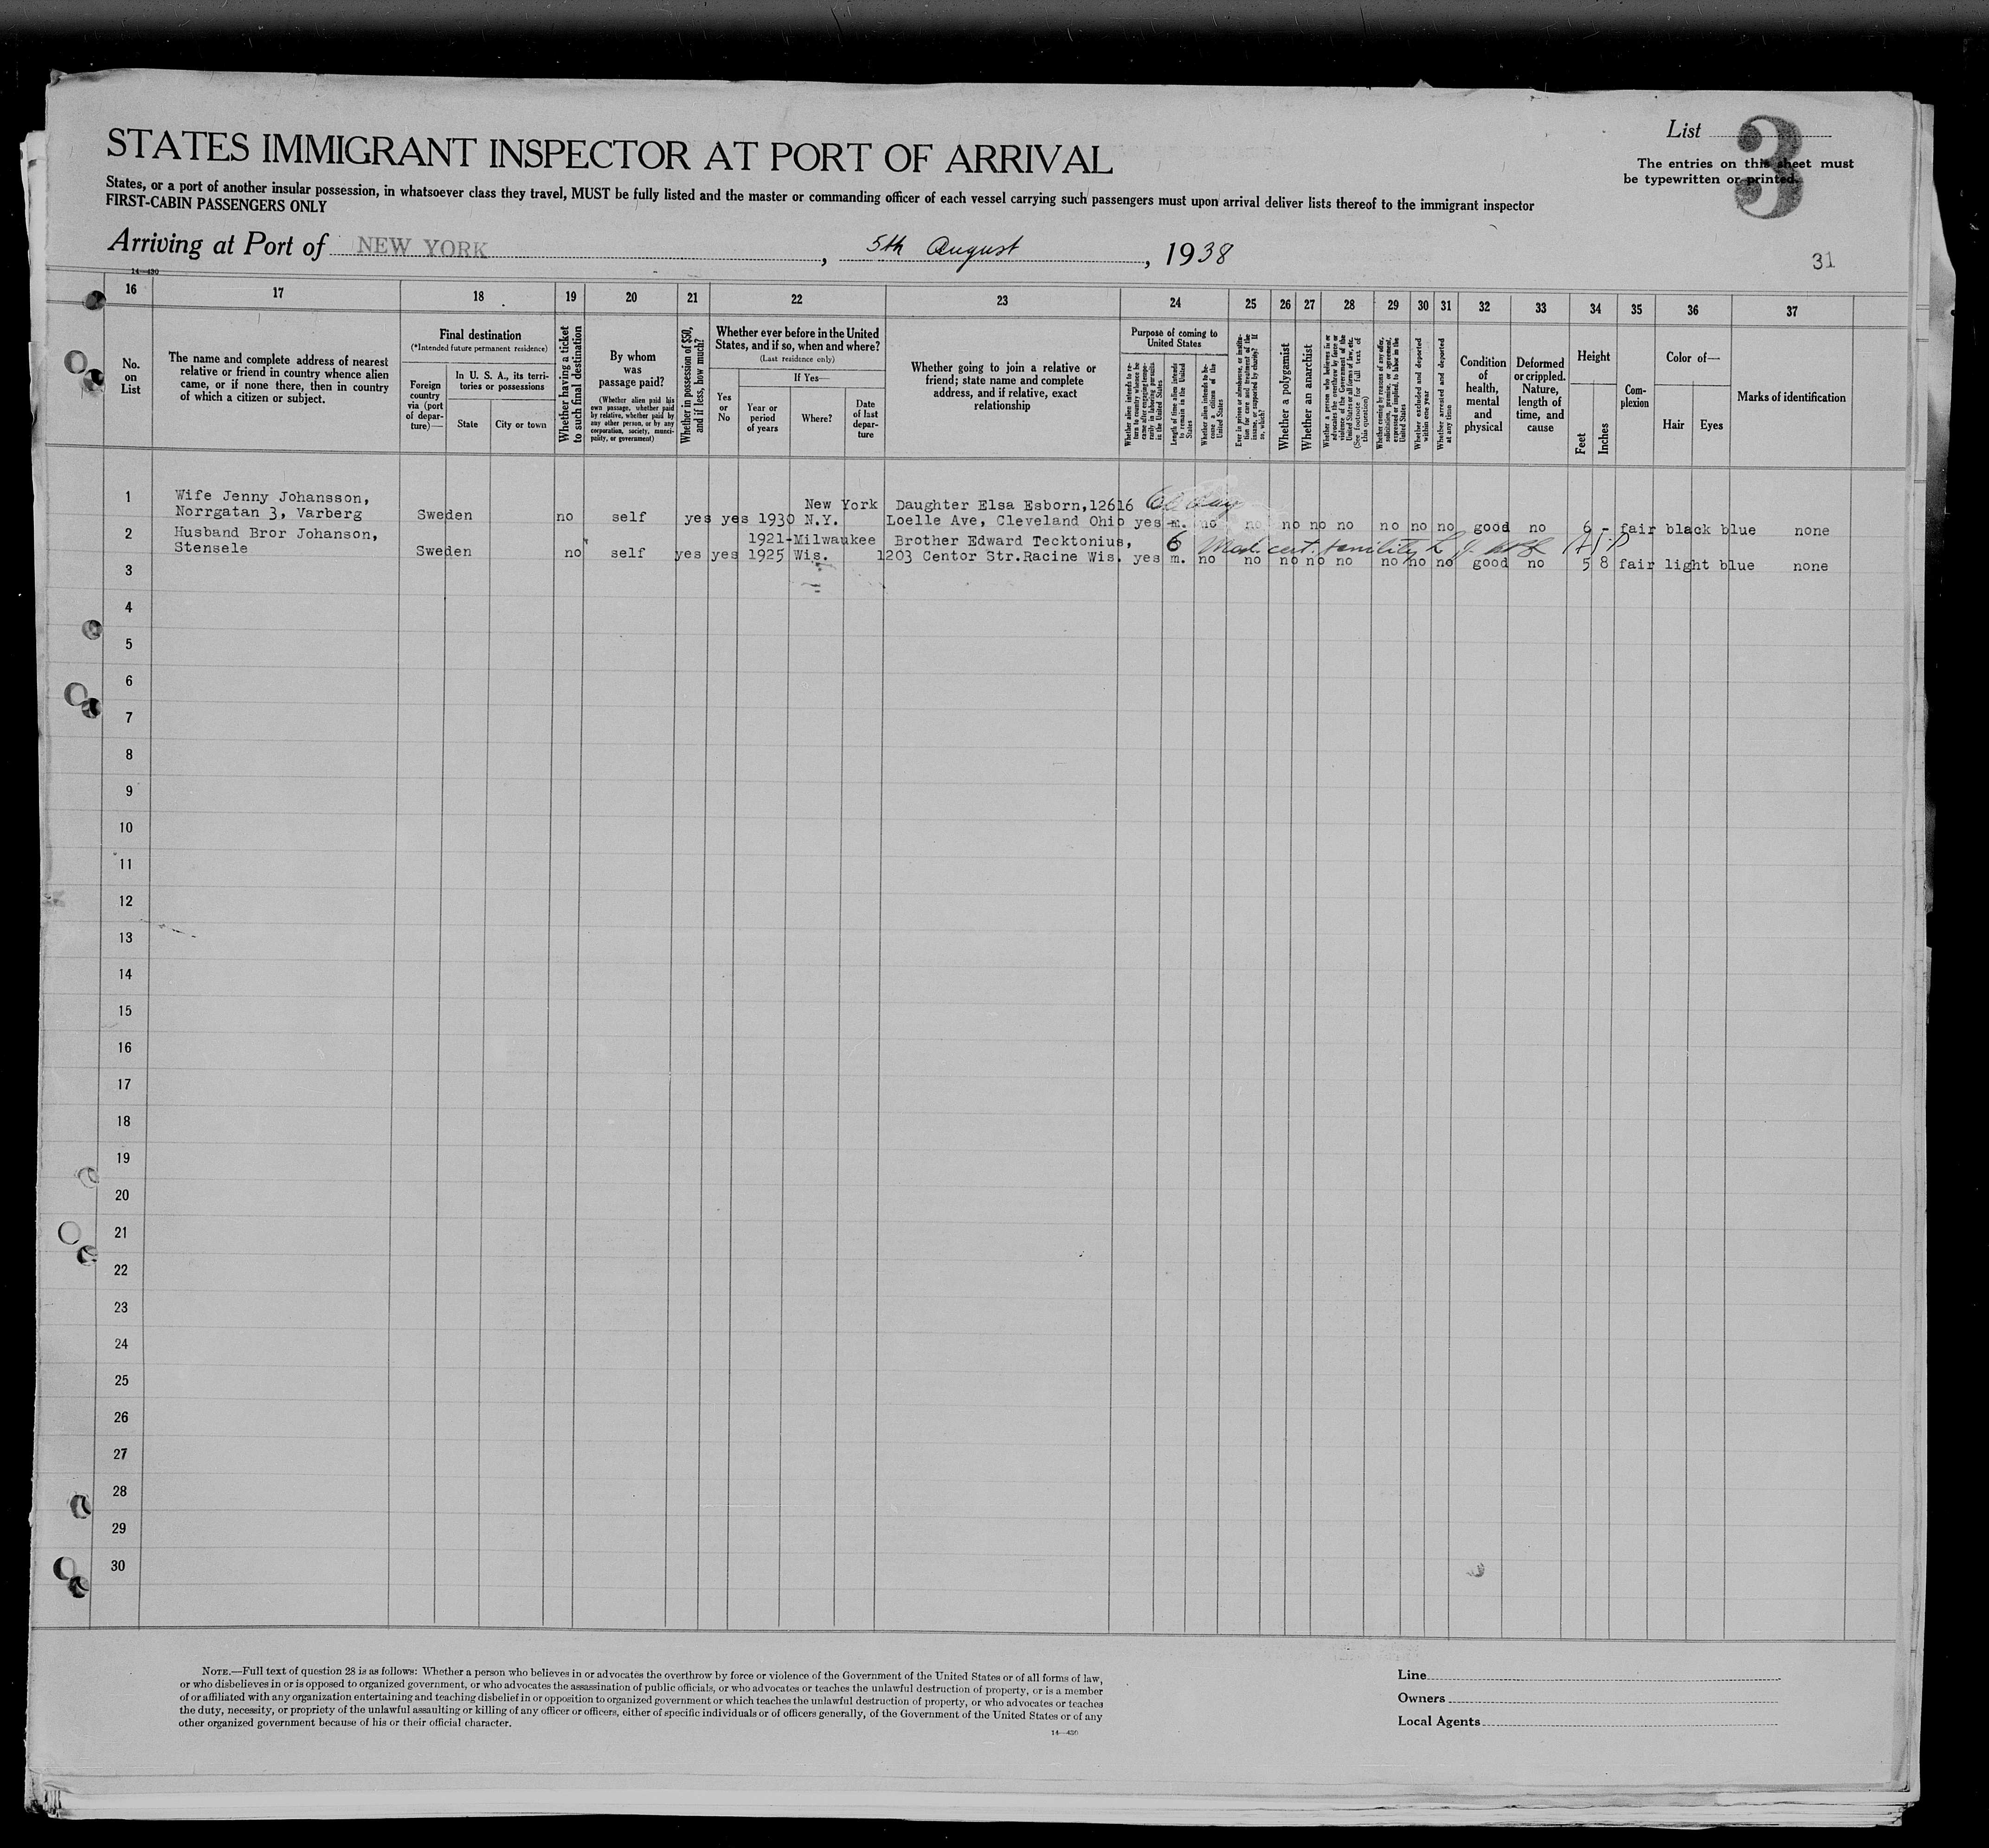 List 3
STATES IMMIGRANT INSPECTOR AT PORT OF ARRIVAL
The entries on this sheet must
be typewritten or printed.
States, or a port of another insular possession, in whatsoever class they travel, MUST be fully listed and the master or commanding officer of each vessel carrying such passengers must upon arrival deliver lists thereof to the immigrant inspector
FIRST-CABIN PASSENGERS ONLY
Arriving at Port of NEW YORK, 5th August, 1938
31
14—430
16 17 18 19 20 21 22 23 24 25 26 27 28 29 30 31 32 33 34 35 36 37
No.
on
List
The name and complete address of nearest
relative or friend in country whence alien
came, or if none there, then in country
of which a citizen or subject.
Final destination
(*Intended future permanent residence)
Foreign
country
via (port
of depar-
ture)—
In U. S. A., its terri-
tories or possessions
State
City or town
Whether having a ticket
to such final destination
By whom
was
passage paid?
(Whether alien paid his
own passage, whether paid
by relative, whether paid by
any other person, or by any
corporation, society, munici-
pality, or government)
Whether in possession of $50,
and if less, how much?
Whether ever before in the United
States, and if so, when and where?
(Last residence only)
Yes
or
No
If Yes—
Year or
period
of years
Where?
Date
of last
depar-
ture
Whether going to join a relative or
friend; state name and complete
address, and if relative, exact
relationship
Purpose of coming to
United States
Whether alien intends to re-
turn to country whence he
came after engaging tempo-
rarily in laboring pursuits
in the United States
Length of time alien intends
to remain in the United
States
Whether alien intends to be-
come a citizen of the
United States
Ever in prison or almshouse, or institu-
tion for care and treatment of the
insane, or supported by charity? If
so, which?
Whether a polygamist
Whether an anarchist
Whether a person who believes in or
advocates the overthrow by force or
violence of the Government of the
United States or all forms of law, etc.
(See footnote for full text of
this question)
Whether coming by reasons of any offer,
solicitation, promise, or agreement,
expressed or implied, to labor in the
United States
Whether excluded and deported
within one year
Whether arrested and deported
at any time
Condition
of
health,
mental
and
physical
Deformed
or crippled.
Nature,
length of
time, and
cause
Height
Feet
Inches
Com-
plexion
Color of—
Hair
Eyes
Marks of identification
1 Wife Jenny Johansson, New York Daughter Elsa Esborn,12616
Norrgatan 3, Varberg Sweden no self yes yes 1930 N.Y. Loelle Ave, Cleveland Ohio yes m. no no no no no no no no good no 6 - fair black blue none
2 Husband Bror Johanson, 1921-Milwaukee Brother Edward Tecktonius, 6 Med. cert.
Stensele Sweden no self yes yes 1925 Wis. 1203 Centor Str.Racine Wis. yes m. no no no no no no no no good no 5 8 fair light blue none
3
4
5
6
7
8
9
10
11
12
13
14
15
16
17
18
19
20
21
22
23
24
25
26
27
28
29
30
NOTE.—Full text of question 28 is as follows: Whether a person who believes in or advocates the overthrow by force or violence of the Government of the United States or of all forms of law,
or who disbelieves in or is opposed to organized government, or who advocates the assassination of public officials, or who advocates or teaches the unlawful destruction of property, or is a member
of or affiliated with any organization entertaining and teaching disbelief in or opposition to organized government or which teaches the unlawful destruction of property, or who advocates or teaches
the duty, necessity, or propriety of the unlawful assaulting or killing of any officer or officers, either of specific individuals or of officers generally, of the Government of the United States or of any
other organized government because of his or their official character.
14—430
Line
Owners
Local Agents